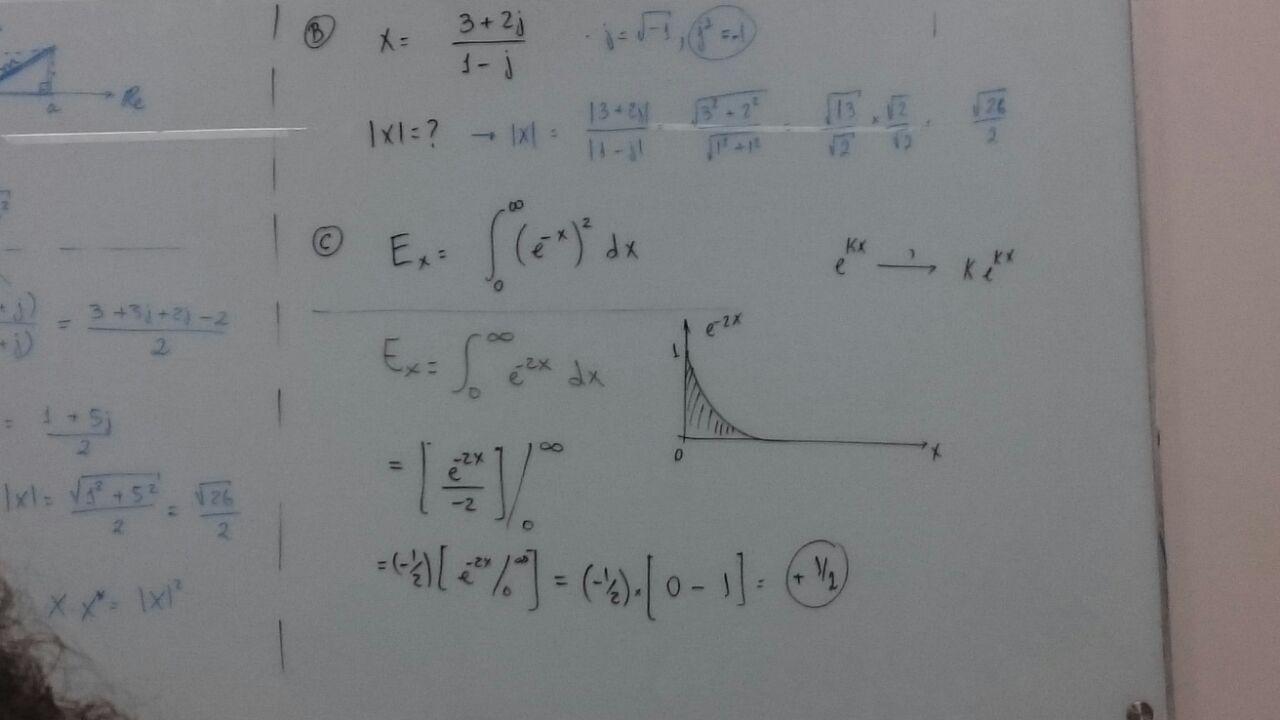 Re
a
= 3 + 3j + 2j - 2 / 2
= 1 + 5j / 2
|x| = √(1² + 5²) / 2 = √26 / 2
x · x* = |x|²
(B) x = 3 + 2j / 1 - j · j = √-1, j² = -1
|x| = ? → |x| = |3 + 2j| / |1 - j| = √(3² + 2²) / √(1² + 1²) = √13 / √2 × √2 / √2 = √26 / 2
(C) Ex = ∫₀^∞ (e^-x)² dx
e^Kx → K e^Kx
Ex = ∫₀^∞ e^-2x dx
e^-2x
1
0
x
= [e^-2x / -2] /₀^∞
= (-1/2) [e^-2x /₀^∞] = (-1/2) · [0 - 1] = + 1/2